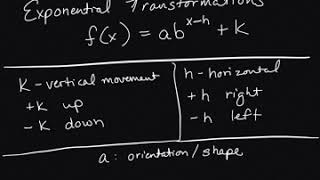 Exponential Transformations
f(x) = ab^{x-h} + K
K - vertical movement
+K up
-K down
h - horizontal
+h right
-h left
a: orientation/shape